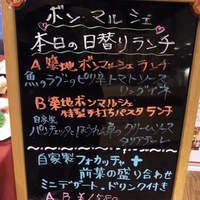 ボン・マルシェ
本日の日替りランチ
A 築地ボンマルシェランチ
魚のラグーのピリ辛トマトソース
リングイネ
B 築地ボンマルシェ
特製手打ちパスタランチ
自家製
パンチェッタとほうれん草のクリームソース
タリアテッレ
自家製フォカッチャ +
前菜の盛り合わせ
ミニデザート、ドリンク付き
A,B